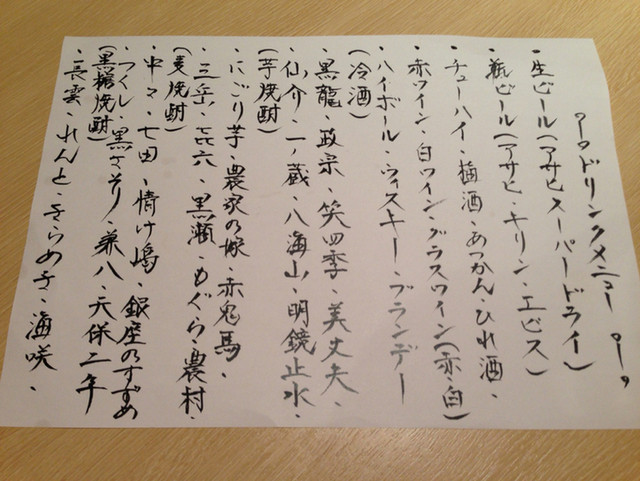 ドリンクメニュー
・生ビール(アサヒスーパードライ)
・瓶ビール(アサヒ・キリン・エビス)
・チューハイ・梅酒・あつかん・ひれ酒・
赤ワイン・白ワイン・グラスワイン(赤・白)
・ハイボール・ウィスキー・ブランデー
(冷酒)
・黒龍・政宗・笑四季・美丈夫・
仙介・一ノ蔵・八海山・明鏡止水・
(芋焼酎)
・にごり芋・農家の嫁・赤兎馬・
・三岳・㐂六・黒瀬・もぐら・農村・
(麦焼酎)
・中々・七田・情け嶋・銀座のすずめ
・つくし・黒さそり・兼八・天保二年
(黒糖焼酎)
・長雲・れんと・きらめき・海咲・